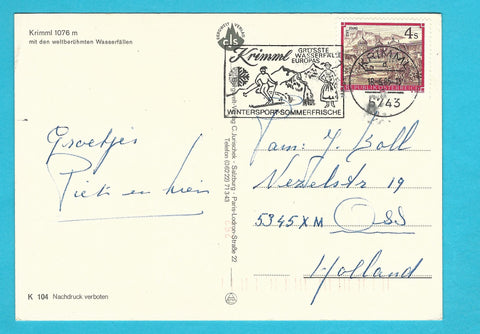 Krimml 1076 m
mit den weltberühmten Wasserfällen
Groetjes
Piet en
K 104 Nachdruck verboten
cds
C. Jurischek - Salzburg - Paris-Lodron-Straße 22
Telefon (06222) 71 3 43
Krimml
GRÖSSTE
WASSERFÄLLE
EUROPAS
WINTERSPORT-SOMMERFRISCHE
4 S
REPUBLIK ÖSTERREICH
KRIMML
5743
Fam: J. Boll
19
5345 XM OSS
Holland